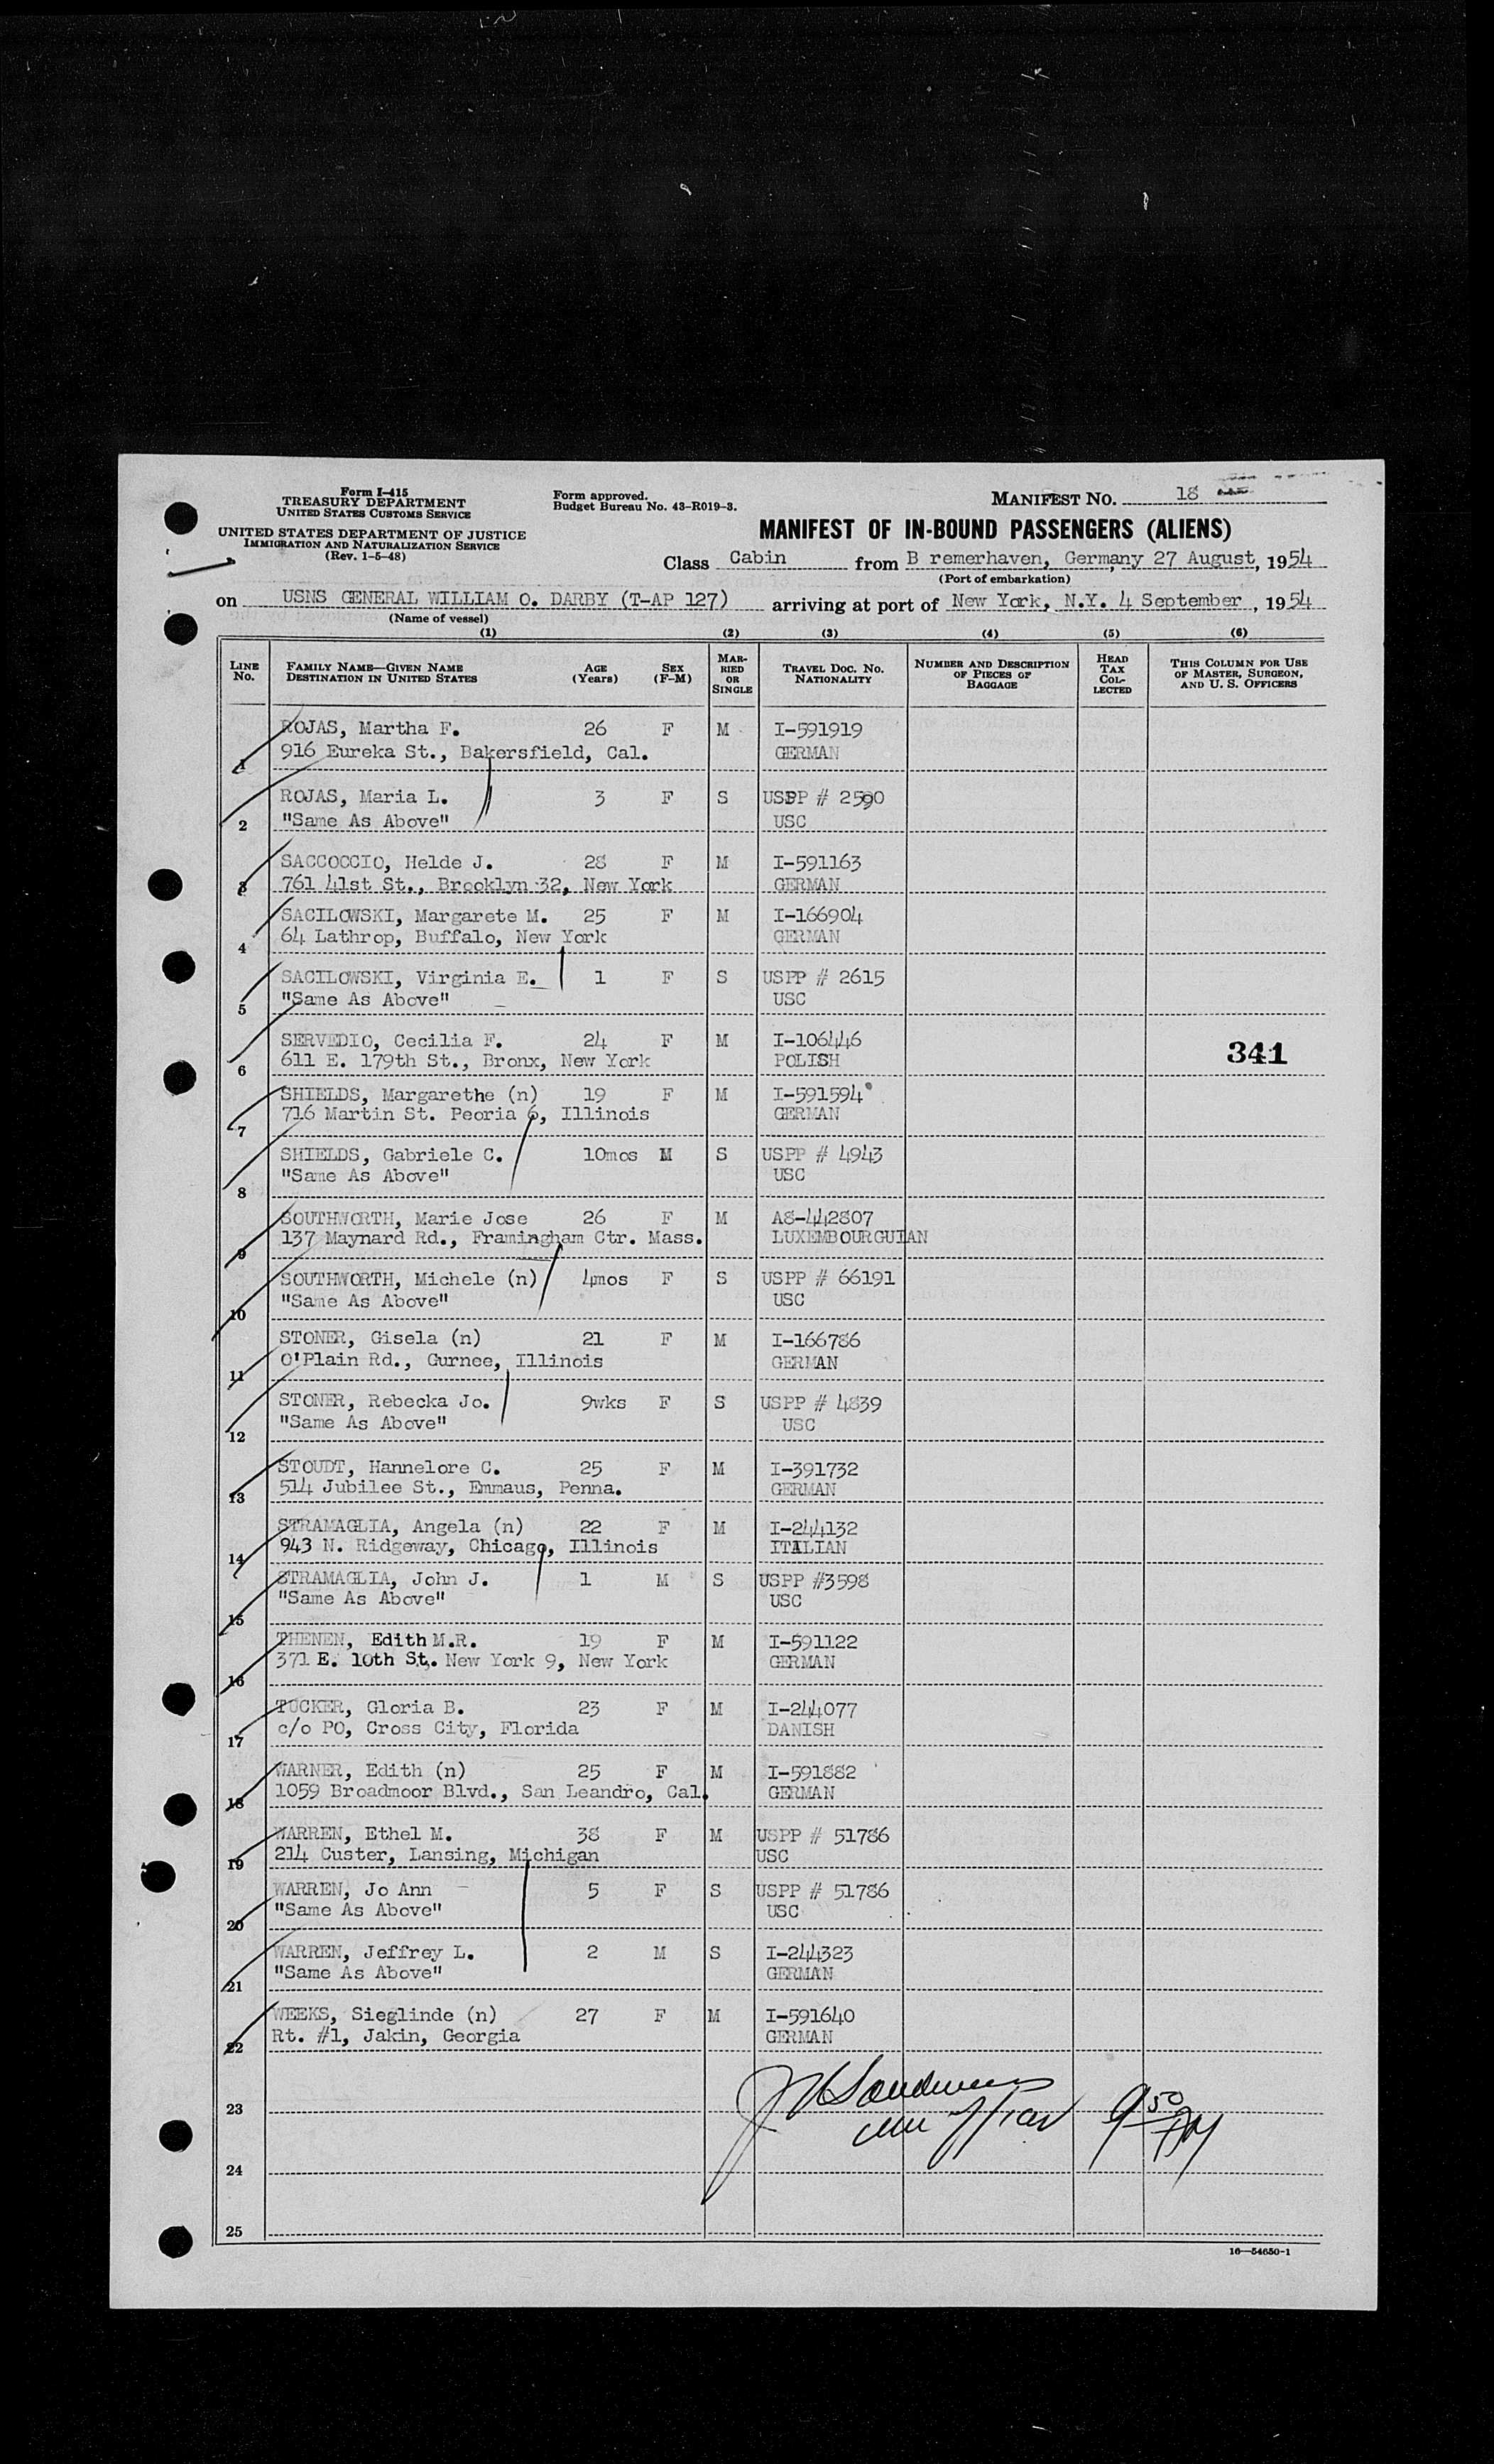 Form I-415
TREASURY DEPARTMENT
UNITED STATES CUSTOMS SERVICE
UNITED STATES DEPARTMENT OF JUSTICE
IMMIGRATION AND NATURALIZATION SERVICE
(Rev. 1-5-48)
Form approved.
Budget Bureau No. 43-R019-3.
MANIFEST NO. 18
MANIFEST OF IN-BOUND PASSENGERS (ALIENS)
Class Cabin from B remerhaven, Germany, 27 August, 1954
(Port of embarkation)
on USNS GENERAL WILLIAM O. DARBY (T-AP 127) arriving at port of New York, N.Y. 4 September, 1954
(Name of vessel)
(1) (2) (3) (4) (5) (6)
LINE NO. FAMILY NAME—GIVEN NAME DESTINATION IN UNITED STATES AGE (Years) SEX (F-M) MARRIED OR SINGLE TRAVEL DOC. NO. NATIONALITY NUMBER AND DESCRIPTION OF PIECES OF BAGGAGE HEAD TAX COLLECTED THIS COLUMN FOR USE OF MASTER, SURGEON, AND U. S. OFFICERS
ROJAS, Martha F. 26 F M I-591919
1 916 Eureka St., Bakersfield, Cal. GERMAN
ROJAS, Maria L. 3 F S USPP # 2590
2 "Same As Above" USC
SACCOCCIO, Helde J. 28 F M I-591163
3 761 41st St., Brooklyn 32, New York GERMAN
SACILOWSKI, Margarete M. 25 F M I-166904
4 64 Lathrop, Buffalo, New York GERMAN
SACILOWSKI, Virginia E. 1 F S USPP # 2615
5 "Same As Above" USC
SERVEDIO, Cecilia F. 24 F M I-106446
6 611 E. 179th St., Bronx, New York POLISH 341
SHIELDS, Margarethe (n) 19 F M I-591594
7 716 Martin St. Peoria 6, Illinois GERMAN
SHIELDS, Gabriele C. 10mos M S USPP # 4943
8 "Same As Above" USC
SOUTHWORTH, Marie Jose 26 F M A8-442807
9 137 Maynard Rd., Framingham Ctr. Mass. LUXEMBOURGUIAN
SOUTHWORTH, Michele (n) 4mos F S USPP # 66191
10 "Same As Above" USC
STONER, Gisela (n) 21 F M I-166786
11 O'Plain Rd., Gurnee, Illinois GERMAN
STONER, Rebecka Jo. 9wks F S USPP # 4839
12 "Same As Above" USC
STOUDT, Hannelore C. 25 F M I-391732
13 514 Jubilee St., Emmaus, Penna. GERMAN
STRAMAGLIA, Angela (n) 22 F M I-244132
14 943 N. Ridgeway, Chicago, Illinois ITALIAN
STRAMAGLIA, John J. 1 M S USPP #3598
15 "Same As Above" USC
THENEN, Edith M.R. 19 F M I-591122
16 371 E. 10th St. New York 9, New York GERMAN
TUCKER, Gloria B. 23 F M I-244077
17 c/o PO, Cross City, Florida DANISH
WARNER, Edith (n) 25 F M I-591882
18 1059 Broadmoor Blvd., San Leandro, Cal. GERMAN
WARREN, Ethel M. 38 F M USPP # 51786
19 214 Custer, Lansing, Michigan USC
WARREN, Jo Ann 5 F S USPP # 51786
20 "Same As Above" USC
WARREN, Jeffrey L. 2 M S I-244323
21 "Same As Above" GERMAN
WEEKS, Sieglinde (n) 27 F M I-591640
22 Rt. #1, Jakin, Georgia GERMAN
23 9 50 AM
24
25
16—54650-1